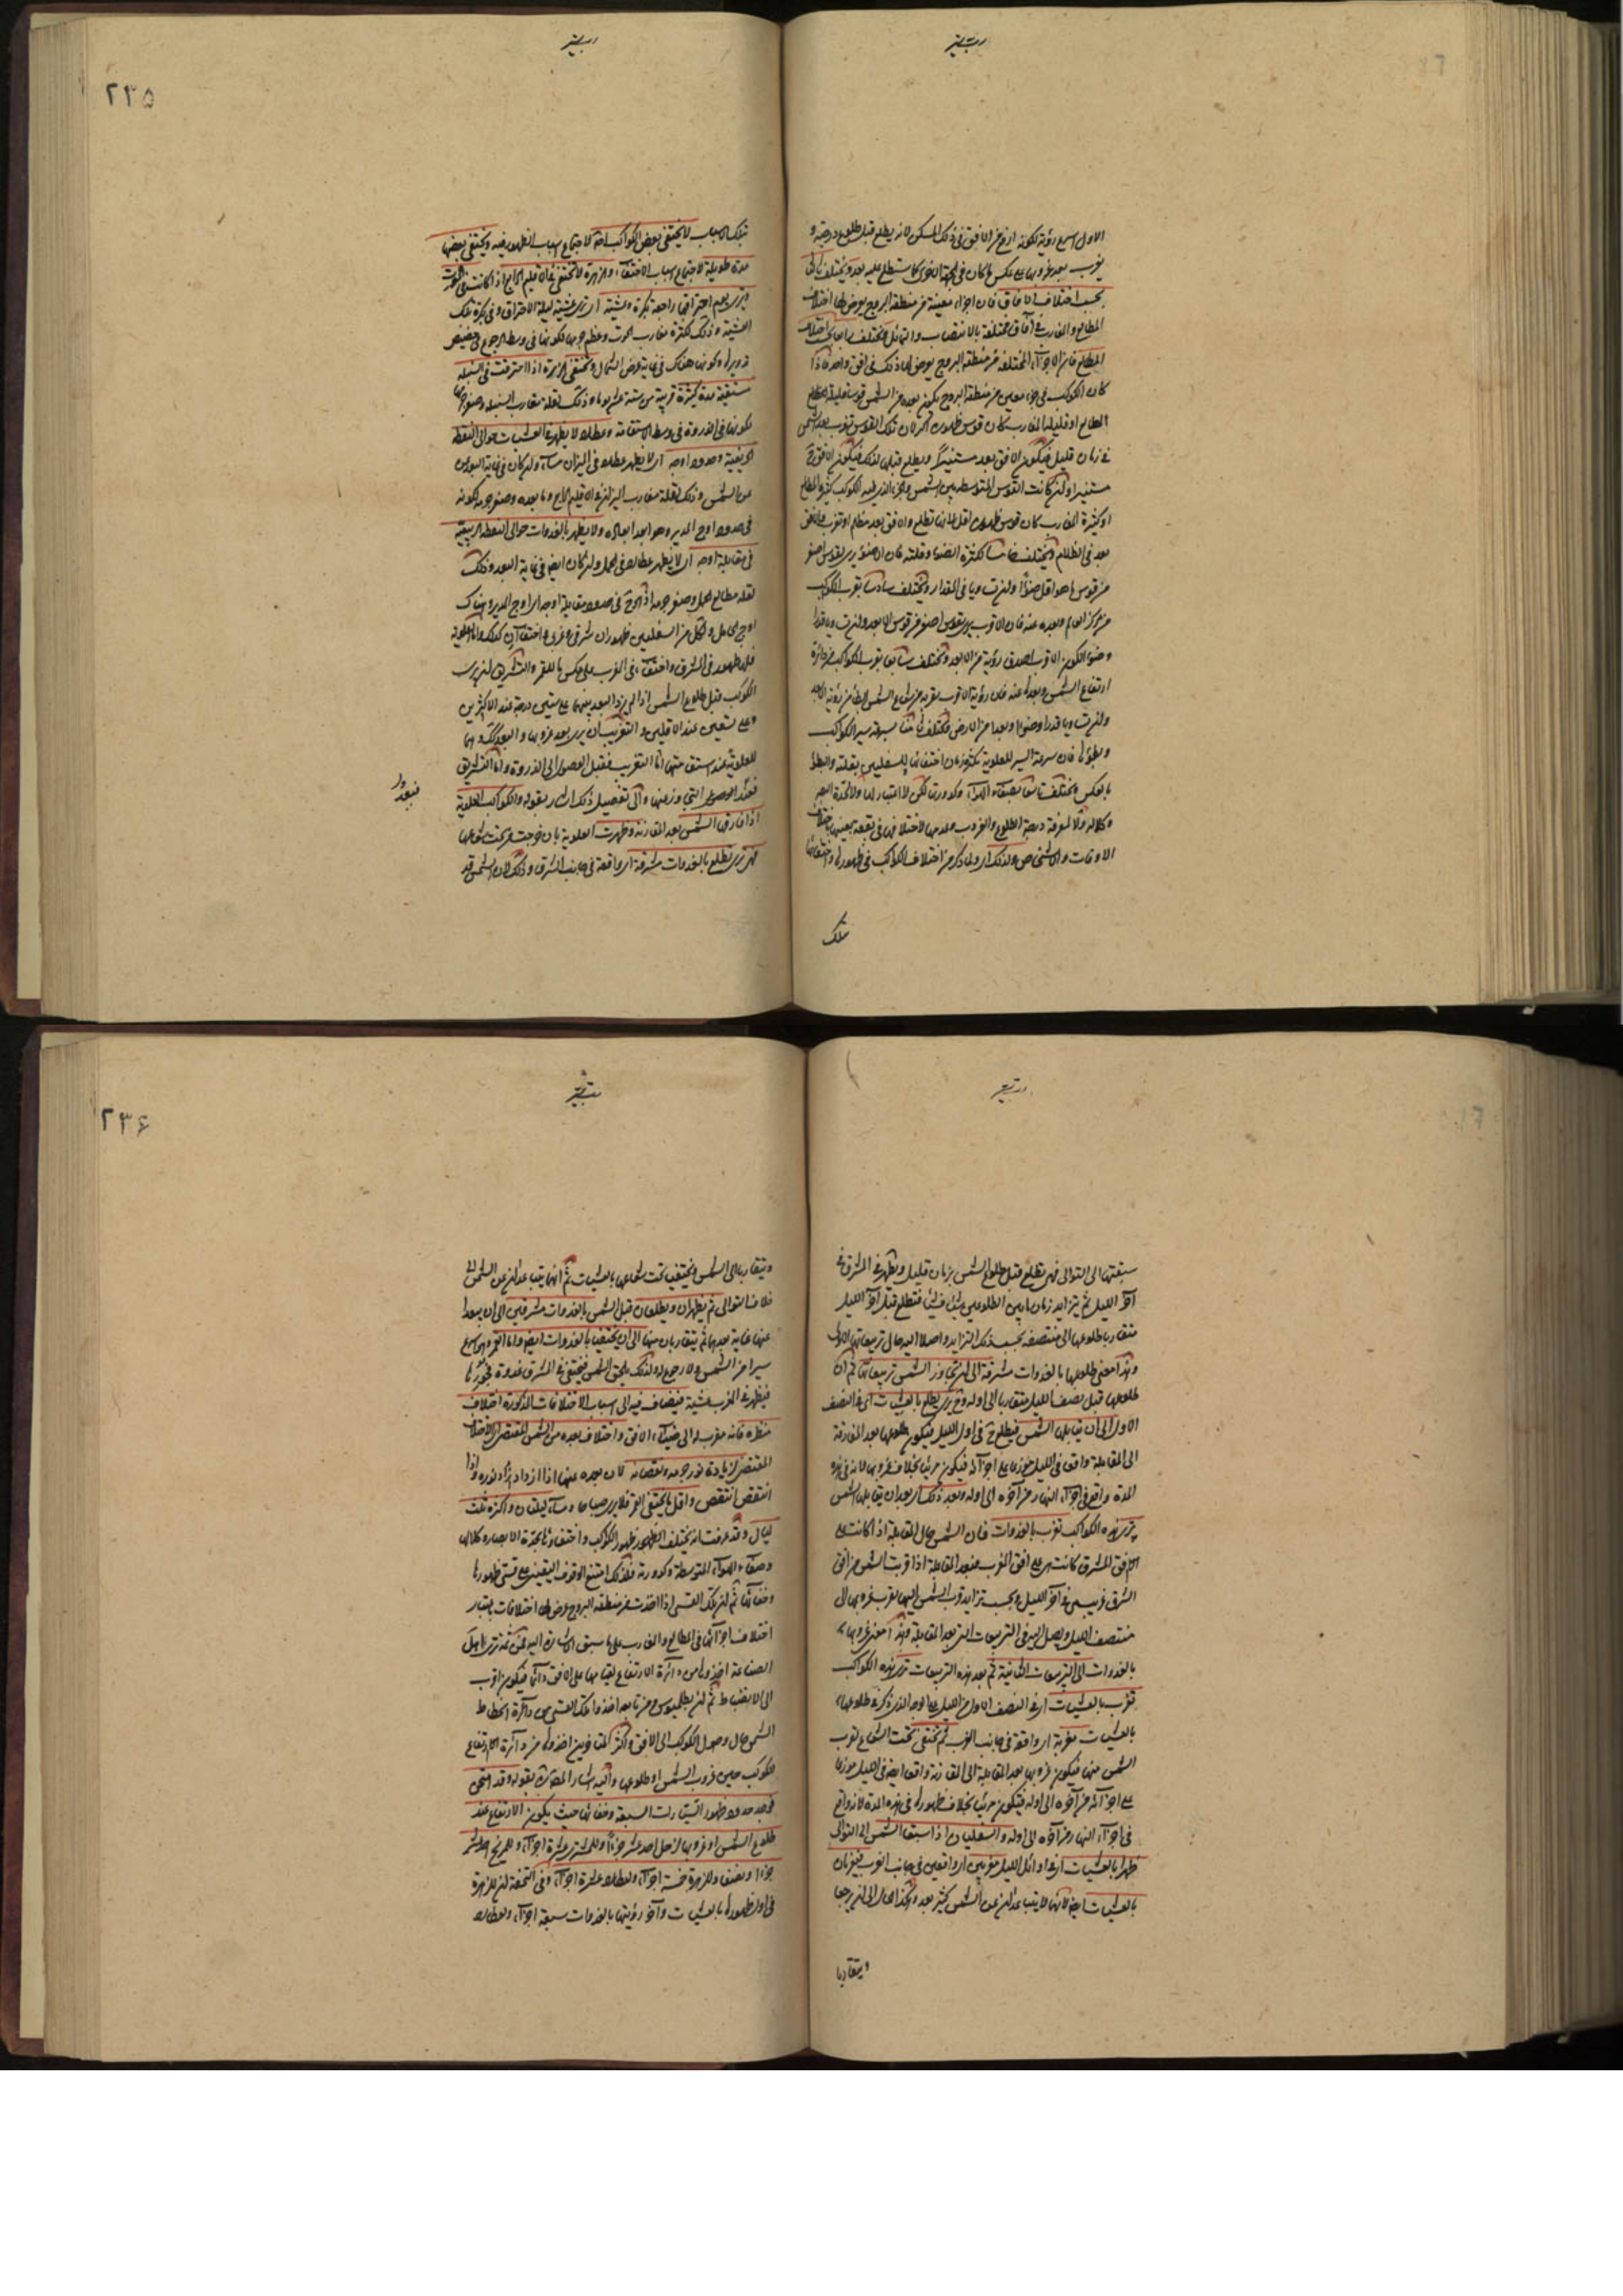 الاول اسرع رؤية لكونه ارفع عن الافق فى ذلك المسكن لانه يطلع قبل طلوع درجته و
يغرب بعد غروبها على عكس ما كان فى الجهة الاخرى كما ستطلع عليه بعد ويختلف ثالثا
بحسب اختلاف الافاق فان اجزاء معينة من منطقة البروج يعرض لها اختلاف
المطالع والمغارب فى آفاق مختلفة بالانتصاب والتمايل ويختلف رابعا بحسب اختلاف
المطالع فان الاجزاء المختلفة من منطقة البروج يعرض لها ذلك فى افق واحد فاذا
كان الكوكب فى جزء معين من منطقة البروج يكون بعده من الشمس قوسا قليلة المطالع
او قليلة المغارب كان قوس ظهوره اكثر لان تلك القوس تغرب بعد الشمس
فى زمان قليل فيكون الافق بعد مستنيرا ويطلع قبلها كذلك فيكون الافق ح
مستنيرا وان كانت القوس المتوسطة بين الشمس والجزء الذى فيه الكوكب كثيرة المطالع
او كثيرة المغارب كان قوس ظهوره اقل لانها تطلع والافق بعد مظلم او تغرب والافق
بعد فى الظلام ويختلف خامسا لكثرة الضوء وقلته فان الاضوء يرى بقوس اصغر
من قوس ما هو اقل ضوءا وان تساويا فى المقدار ويختلف سادسا بقرب الكوكب
من مركز العالم وبعده عنه فان الاقرب يرى بقوس اصغر من قوس الابعد وان تساويا قدرا
وضوءا لكون الاقرب اصدق رؤية من الابعد ويختلف سابعا بقرب الكوكب من دائرة
ارتفاع الشمس وبعده عنه فان رؤية الاقرب لقربه من شعاع الشمس ابطأ من رؤية الابعد
وان تساويا قدرا وضوءا وبعدا من الارض ويختلف ثامنا بسرعة سير الكواكب
وبطؤها فان سرعة السير للعلوية تكثر زمان اختفائها وللسفليين بقلته والبطؤ
بالعكس ويختلف تاسعا بصفاء الهواء وكدورته لكن لا اعتبار لها ولا لحدة البصر
وكلاله ولا لمعرفة درجة الطلوع والغروب وعدمها لاختلافها فى بقعة بعينها باختلاف
الاوقات والاشخاص ولذلك اى ولما ذكر من اختلاف الكواكب فى ظهورها واختفائها
تلك
٢٣٥
بتلك الاسباب لا يختفى بعض الكواكب اصلا لاجتماع اسباب الظهور فيه ويختفى بعضها
مدة طويلة لاجتماع اسباب الاختفاء والزهرة لا تختفى فى الاقليم الرابع اذا كانت فى الحوت
وترى يوم احتراقها راجعة بكرة وعشية اى ترى عشية ليلة الاحتراق وفى بكرة تلك
العشية وذلك لكثرة مغارب الحوت وعظم جرمها لكونها فى وسط الرجوع فى حضيض
تدويرها وكونها هناك فى غاية عرض الشمال وتختفى الزهرة اذا احترقت فى السنبلة
مستقيمة مدة كثيرة قريبة من ستة عشر يوما وذلك لقلة مغارب السنبلة وصغر جرمها
لكونها فى الذروة فى وسط الاستقامة وعطارد لا يظهر بالعشيات حوالى النقطة
الخريفية وحدود اوجه اى لا يظهر عطارد فى الميزان مساء وان كان فى غاية البعد
من الشمس وذلك لقلة مغارب الميزان فى الاقليم الرابع وما بعده وصغر جرمه لكونه
فى حدود اوج المدير وهو ابعد ابعاده ولا يظهر بالغدوات حوالى النقطة الربيعية
فى مقابلة اوجه اى لا يظهر عطارد فى الحمل وان كان ايضا فى غاية البعد وذلك
لقلة مطالع الحمل وصغر جرمه اذ هو ح فى حدود مقابلة اوجه اى اوج المدير وهناك
اوج الحامل ولكل من السفليين ظهوران شرقى وغربى واختفاآن كذلك واما العلوية
فلها ظهور فى الشرق واختفاء فى الغرب على عكس ما للقمر والتشريق ان يرى
الكوكب قبل طلوع الشمس اذا لم يزد البعد بينهما على ستين درجة عند الاكثرين
وعلى تسعين عند الاقلين والتغريب ان يرى بعد غروبها والبعد كذلك وهما
للعلوية عند استقامتها اما التغريب فقبل الوصول الى الذروة واما التشريق
فبعد الوصول اليها وزمنها والى تفصيل ذلك اشار بقوله والكواكب العلوية
اذا فارق الشمس بعد المقارنة وظهرت العلوية بان خرجت من تحت شعاعها
فهى ترى تطلع بالغدوات مشرقة اى واقعة فى جانب الشرق وذلك لان الشمس قد
سبقتها الى التوالى فهى تطلع قبل طلوع الشمس بزمان قليل ويظهر فى المشرق فى
آخر الليل ثم يتزايد زمان ما بين الطلوعين شيئا فشيئا فتطلع قبل آخر الليل
متقاربا طلوعها الى منتصفه بحسب ذلك التزايد واصلا اليه حال تربيعاتها الاولى
وهذا معنى طلوعها بالغدوات مشرقة الى ان تجاوز الشمس تربيعاتها ثم ان
طلوعها قبل نصف الليل متقاربا الى اوله وح يرى يطلع بالعشيات اى فى النصف
الاول الى ان يقابلها الشمس فيطلع ح فى اول الليل فيكون طلوعها بعد المقارنة
الى المقابلة واقعا فى الليل موزعا على اجزائه فيكون مرئيا بخلاف غروبها لانه فى هذه
المدة واقع فى اجزاء النهار من آخره الى اوله وبعد ذلك اى بعد ان يقابلها الشمس
يرى هذه الكواكب تغرب بالغدوات فان الشمس حال المقابلة اذا كانت على
الافق المشرق كانت هى على افق المغرب فبعد المقابلة اذا قربت الشمس من افق
الشرق غربت هى فى آخر الليل وبحسب تزايد قرب الشمس اليها يقرب غروبها الى
منتصف الليل ويصل اليه فى التربيعات التى بعد المقابلة وهذا معنى غروبها
بالغدوات الى التربيعات الثانية ثم بعد هذه التربيعات ترى هذه الكواكب
تغرب بالعشيات اى فى النصف الاول من الليل على الوجه الذى ذكر فى طلوعها
بالعشيات مغربة اى واقعة فى جانب الغرب ثم تختفى تحت الشعاع لقرب
الشمس منها فيكون غروبها بعد المقابلة الى المقارنة واقعا ايضا فى الليل موزعا
على اجزائه من آخره الى اوله فيكون مرئيا بخلاف ظهورها فى هذه المدة لانه واقع
فى اجزاء النهار من آخره الى اوله والسفليان اذا سبقا الشمس الى التوالى
ظهرا بالعشيات اى فى اوائل الليل مغربين اى واقعين فى جانب الغرب فيغربان
بالعشيات ايضا لانهما لا يتباعدان عن الشمس كثير بعد وهكذا الحال الى ان يرجعا
ويتقاربا
٢٣۶
ويتقاربا الى الشمس ويختفيا تحت شعاعها بالعشيات ثم انهما يتباعدان عن الشمس الى
خلاف التوالى ثم يظهران ويطلعان قبل الشمس بالغدوات مشرقين الى ان يبعدا
عنها غاية بعدهما ثم يتقاربان منها الى ان يختفيا بالغدوات ايضا واما القمر فهو اسرع
سيرا من الشمس ولا رجوع له ولذلك يلحق الشمس فيختفى فى المشرق غدوة
فيظهر فى المغرب عشية فيضاف فيه الى اسباب الاختلافات المذكورة اختلاف
منظره فانه مقرب له الى ضياء الافق واختلاف بعده من الشمس المقتضى لاختلاف
المقتضى لزيادة نور جرمه ونقصانه لان بعده عنها اذا ازداد ازداد نوره واذا
انتقص انتقص واقل ما يختفى القمر فلا يرى صباحا ومساء ليلتان واكثره ثلث
ليال وقد عرفت انه يختلف الظهور ظهور الكواكب واختفاؤها بحدة الابصار وكلالها
وصفاء الهواء المتوسطة وكدورته فلذلك امتنع الوقوف اليقينى على قسى ظهورها
وخفائها ثم ان تلك القسى اذا اخذت من منطقة البروج عرض لها اختلافات باعتبار
اختلاف اجزائها فى المطالع والمغارب على ما سبق الاشارة اليه فمن ثمة ترى اهل
الصناعة اخذوها من دائرة الارتفاع لقيامها على الافق دائما فيكون اقرب
الى الانضباط ثم ان بطليموس ومن تابعه اخذوا تلك القسى من دائرة انحطاط
الشمس حال وصول الكوكب الى الافق واكثر المتأخرين اخذوها من دائرة الارتفاع
للكوكب حين غروب الشمس او طلوعها واليه اشار المصنف بقوله وقد امتحن
فوجد حدود ظهور السيارات السبعة وخفائها حيث يكون الارتفاع عند
طلوع الشمس او غروبها لزحل احد عشر جزءا وللمشترى عشرة اجزاء وللمريخ احد عشر
جزءا ونصف وللزهرة خمسة اجزاء ولعطارد عشرة اجزاء وفى التحفة ان للزهرة
فى اول ظهورها بالعشيات وآخر رؤيتها بالغدوات سبعة اجزاء ولعطارد